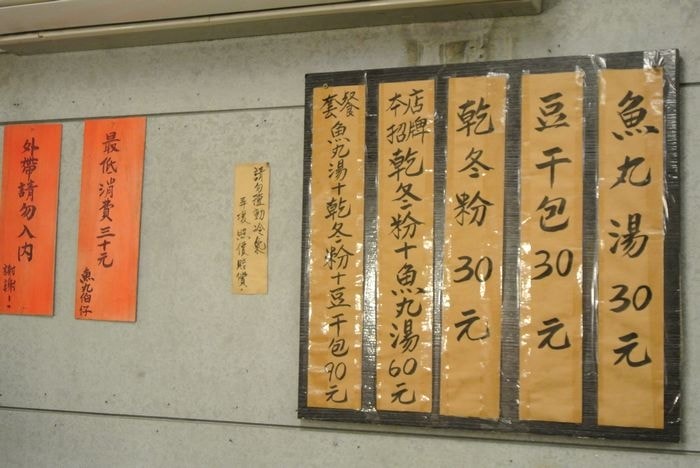 魚丸湯30元
豆干包30元
乾冬粉30元
本店
招牌
乾冬粉+魚丸湯60元
套餐
魚丸湯+乾冬粉+豆干包90元
請勿擅動冷氣
弄壞照價賠償。
最低消費三十元
魚丸伯仔
外帶請勿入內
謝謝!